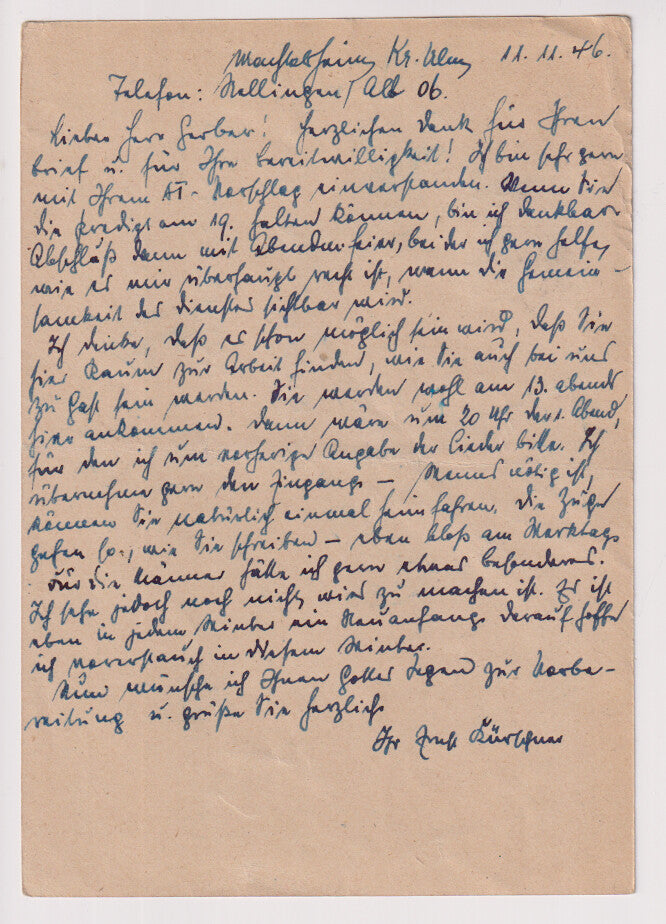 Machtolsheim, Kr. Ulm 11. 11. 46.
Telefon: Nellingen/Alb 06.
Lieber Herr Gerber! Herzlichen Dank für Ihren
Brief u. für Ihre Bereitwilligkeit! Ich bin sehr gern
mit Ihrem AT-Vorschlag einverstanden. Wenn Sie
die Predigt am 19. halten können, bin ich dankbar.
Abschluß dann mit Abendm.feier, bei der ich gern helfe,
wie es mir überhaupt recht ist, wenn die Gemein-
samkeit des Dienstes sichtbar wird.
Ich denke, daß es schon möglich sein wird, daß Sie
hier Raum zur Arbeit finden, wie Sie auch bei uns
zu Gast sein werden. Sie werden wohl am 13. abends
hier ankommen. Dann wäre um 20 Uhr der 1. Abend,
für den ich um vorherige Angabe der Lieder bitte. Ich
übernehme gern den Eingang – Wenns nötig ist,
können Sie natürlich einmal heimfahren. Die Züge
gehen so, wie Sie schreiben – eben bloß am Werktag.
Für die Männer hätte ich gern etwas besonderes.
Ich sehe jedoch noch nicht, wies zu machen ist. Es ist
eben in jedem Winter ein Neuanfang. Darauf hoffe
ich vorerst auch in diesem Winter.
Nun wünsche ich Ihnen Gottes Segen zur Vorbe-
reitung u. grüße Sie herzlich
Ihr Ernst Kürschner